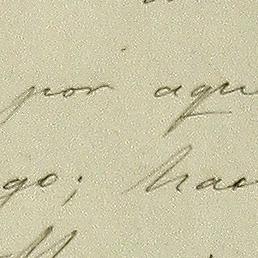 por aqu
go; hac